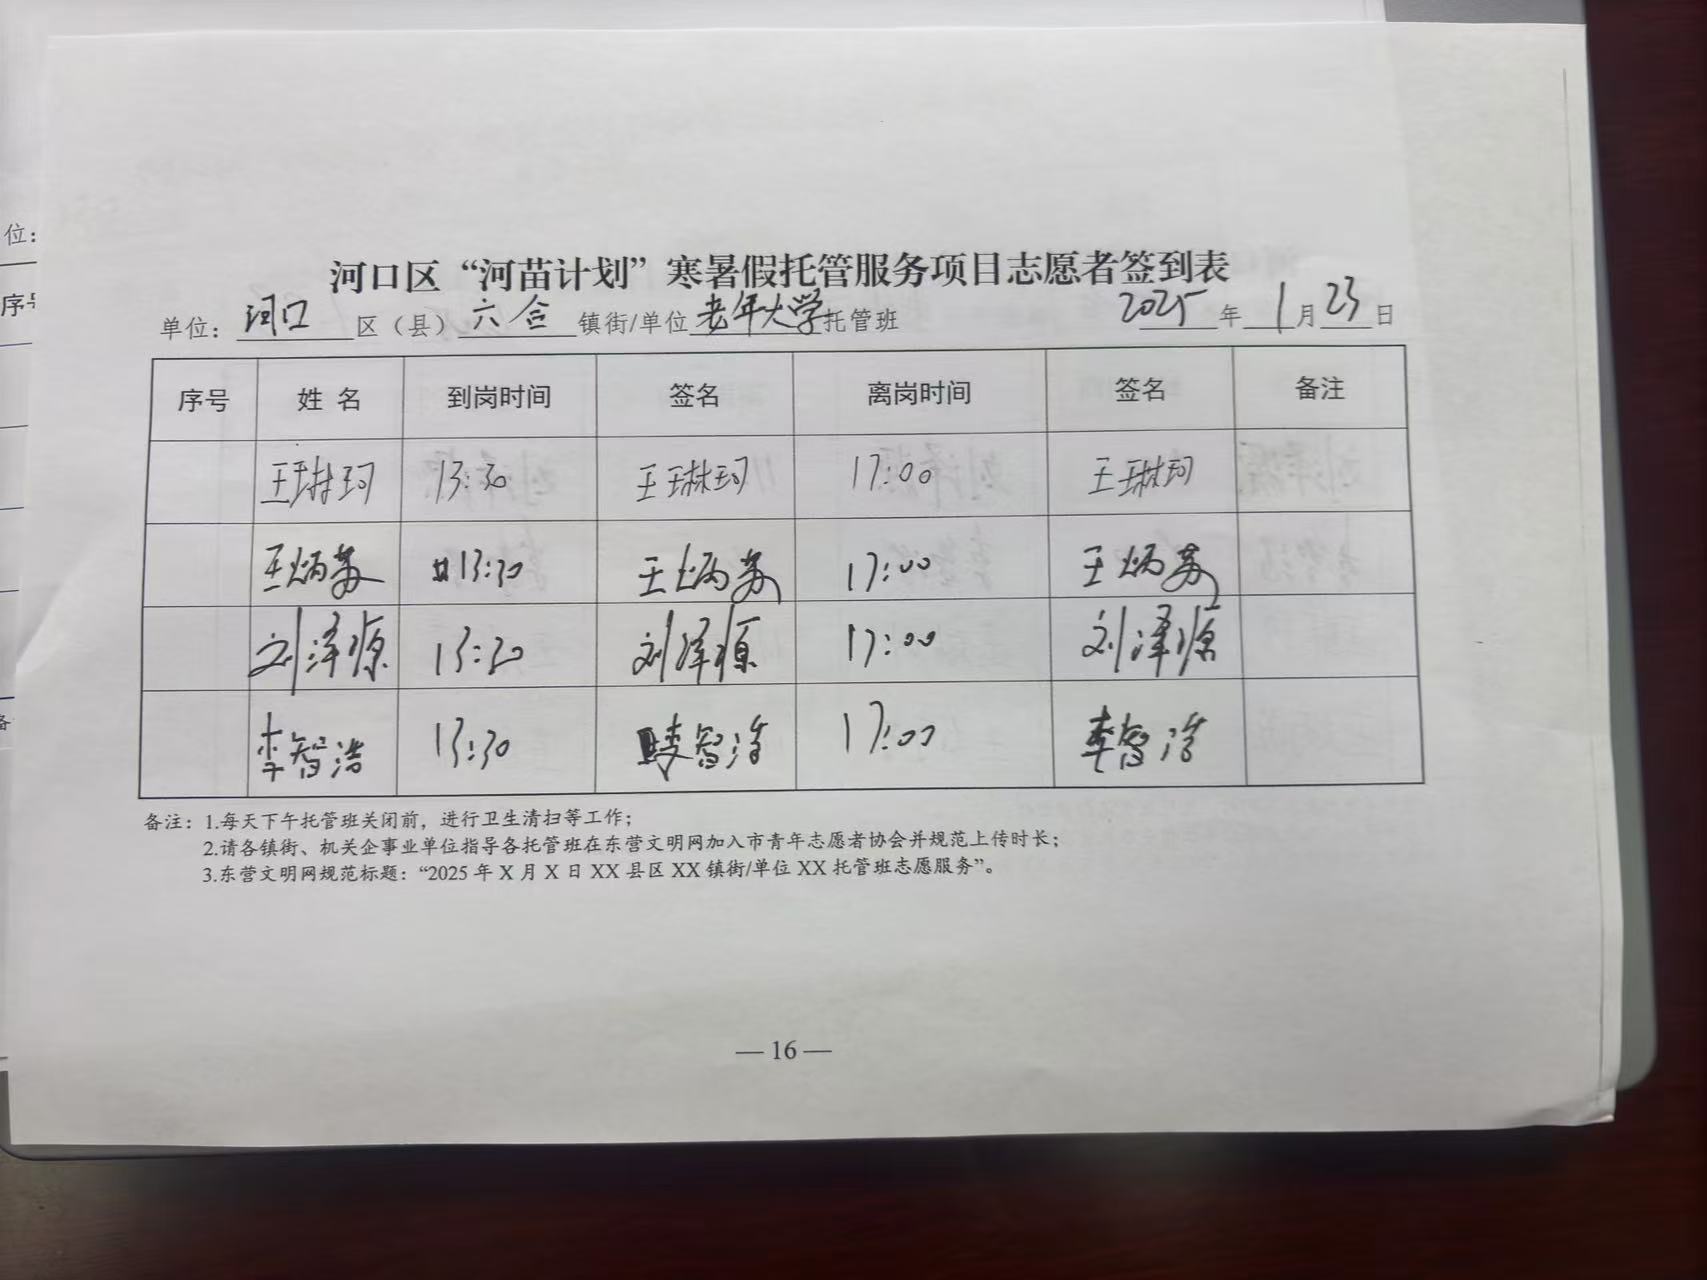 位：
序号
河口区“河苗计划”寒暑假托管服务项目志愿者签到表
单位：河口区（县）六合镇街/单位老年大学托管班 2025年1月23日
序号 姓名 到岗时间 签名 离岗时间 签名 备注
王琳珂 13:30 王琳珂 17:00 王琳珂
王炳苏 13:30 王炳苏 17:00 王炳苏
刘泽源 13:30 刘泽源 17:00 刘泽源
李智浩 13:30 李智浩 17:00 李智浩
备注：1.每天下午托管班关闭前，进行卫生清扫等工作；
2.请各镇街、机关企事业单位指导各托管班在东营文明网加入市青年志愿者协会并规范上传时长；
3.东营文明网规范标题：“2025 年 X 月 X 日 XX 县区 XX 镇街/单位 XX 托管班志愿服务”。
— 16 —